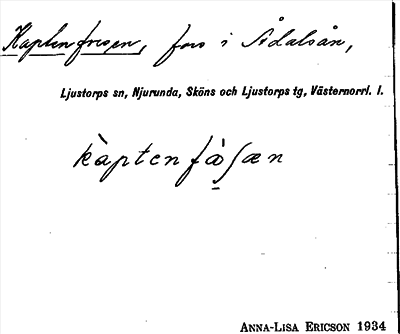 Kaptenfresen, fors i Ådalsån,
Ljustorps sn, Njurunda, Sköns och Ljustorps tg, Västernorrl. l.
kàptenfàʃæn
ANNA-LISA ERICSON 1934